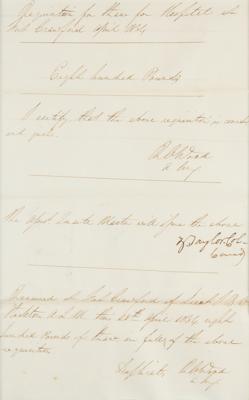 Requisition for Straw for Hospital at
Fort Crawford April 1834
Eight hundred Pounds
I certify that the above requisition is correct
and just.
R C Wood
A Surg
The Asst Quarter Master will issue the above
Z Taylor Col
Comd
Received at Fort Crawford of
this 28th April 1834 eight
hundred Pounds of Straw in full of the above
requisition
Duplicate R C Wood
A Surg